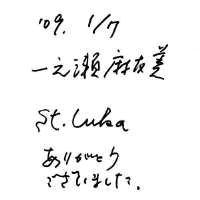 '09. 1/7
一之瀬麻友美
St. Luka
ありがとう
ございました。